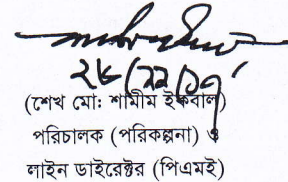 ২৮/১২/১৭
(শেখ মো: শামীম ইকবাল)
পরিচালক (পরিকল্পনা) ও
লাইন ডাইরেক্টর (পিএমই)